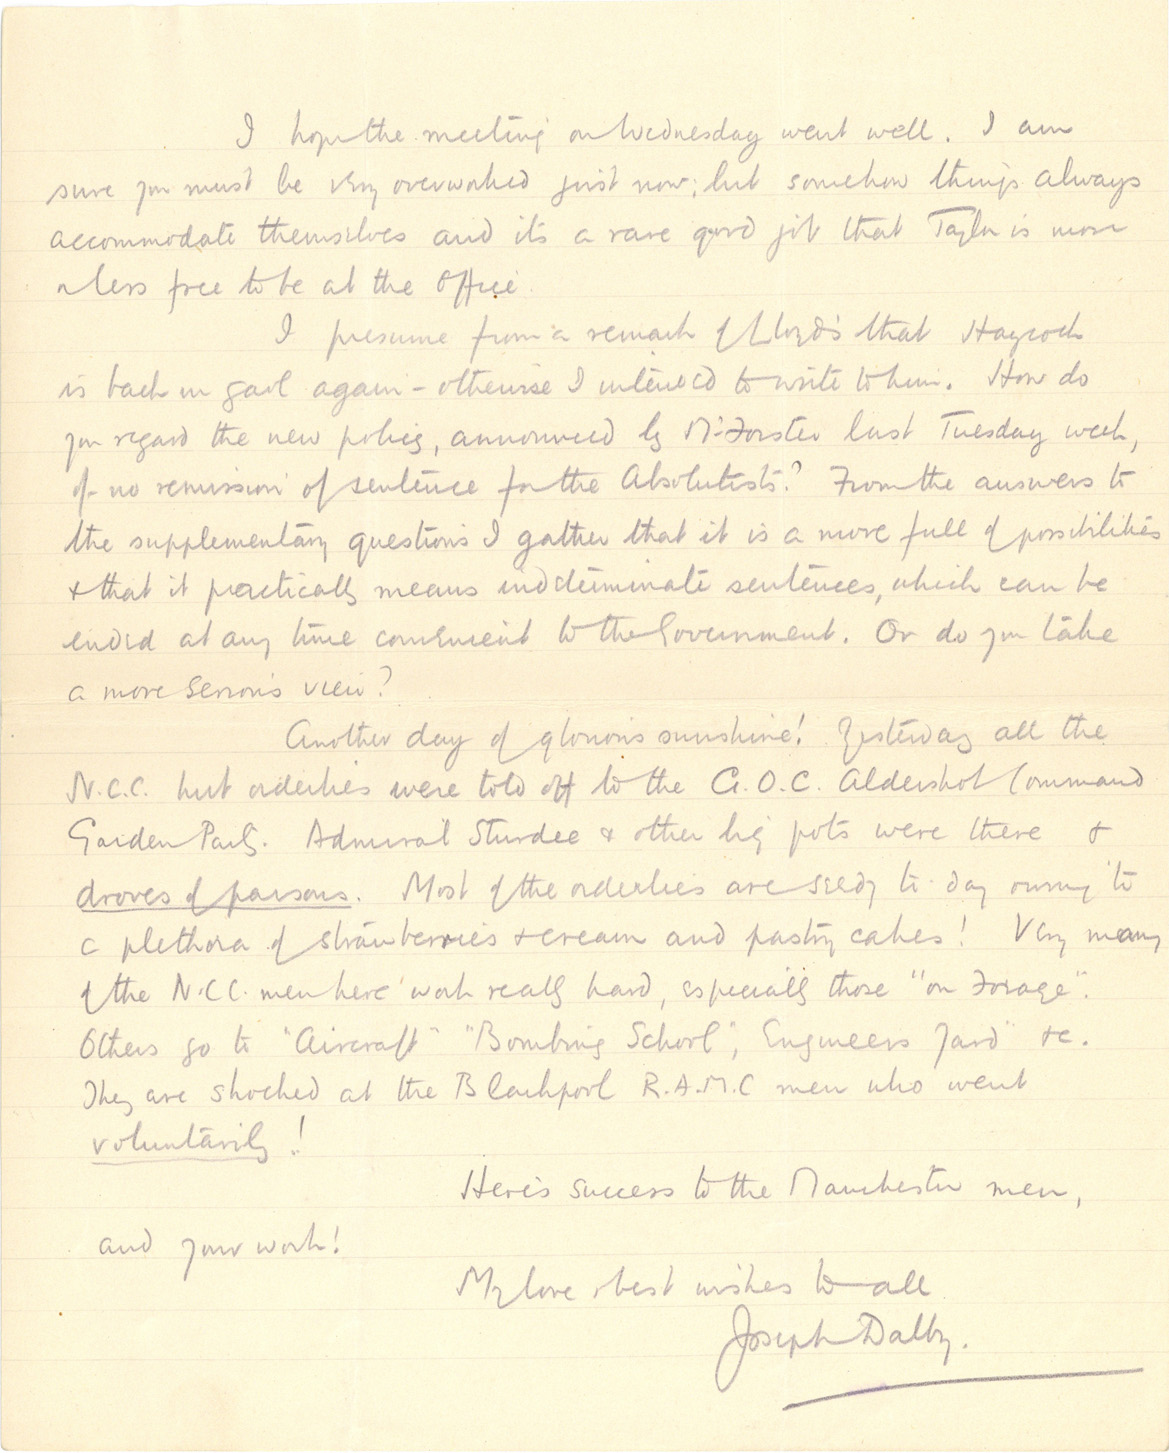 I hope the meeting on Wednesday went well. I am
sure you must be very overworked just now; but somehow things always
accommodate themselves and it's a rare good job that Taylor is more
or less free to be at the office.
I presume from a remark of Lloyd's that Haycock
is back in gaol again - otherwise I intended to write to him. How do
you regard the new policy, announced by Mr Forster last Tuesday week,
of no remission of sentence for the Absolutists? From the answers to
the supplementary questions I gather that it is a move full of possibilities
& that it practically means indeterminate sentences, which can be
ended at any time convenient to the Government. Or do you take
a more serious view?
Another day of glorious sunshine! Yesterday all the
N.C.C. hut orderlies were told off to the G.O.C. Aldershot Command
Garden Party. Admiral Sturdee & other big pots were there &
droves of parsons. Most of the orderlies are seedy to-day owing to
a plethora of strawberries & cream and pastry cakes! Very many
of the N.C.C. men here work really hard, especially those "on Forage".
Others go to "Aircraft" "Bombing School", Engineers Yard" &c.
They are shocked at the Blackpool R.A.M.C men who went
voluntarily!
Here's success to the Manchester men,
and your work!
My love & best wishes to all
Joseph Dalby.